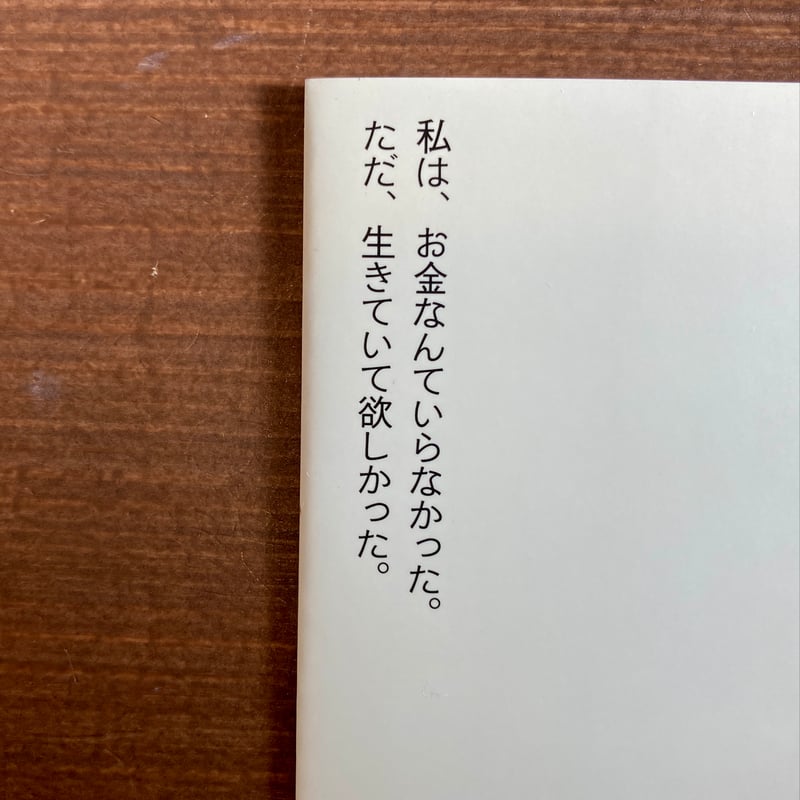 私は、お金なんていらなかった。
ただ、生きていて欲しかった。